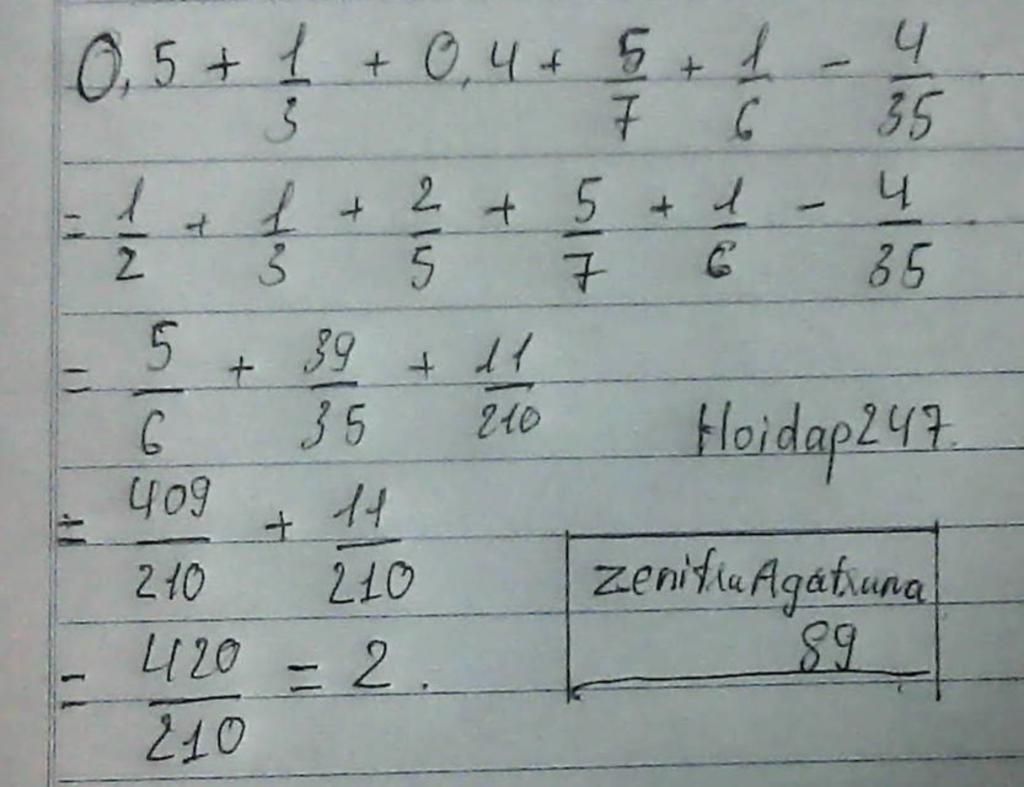 0,5 + 1/3 + 0,4 + 5/7 + 1/6 - 4/35
= 1/2 + 1/3 + 2/5 + 5/7 + 1/6 - 4/35
= 5/6 + 39/35 + 11/210
Hoidap247.
= 409/210 + 11/210
zenitsuAgatsuna
89
= 420/210 = 2.